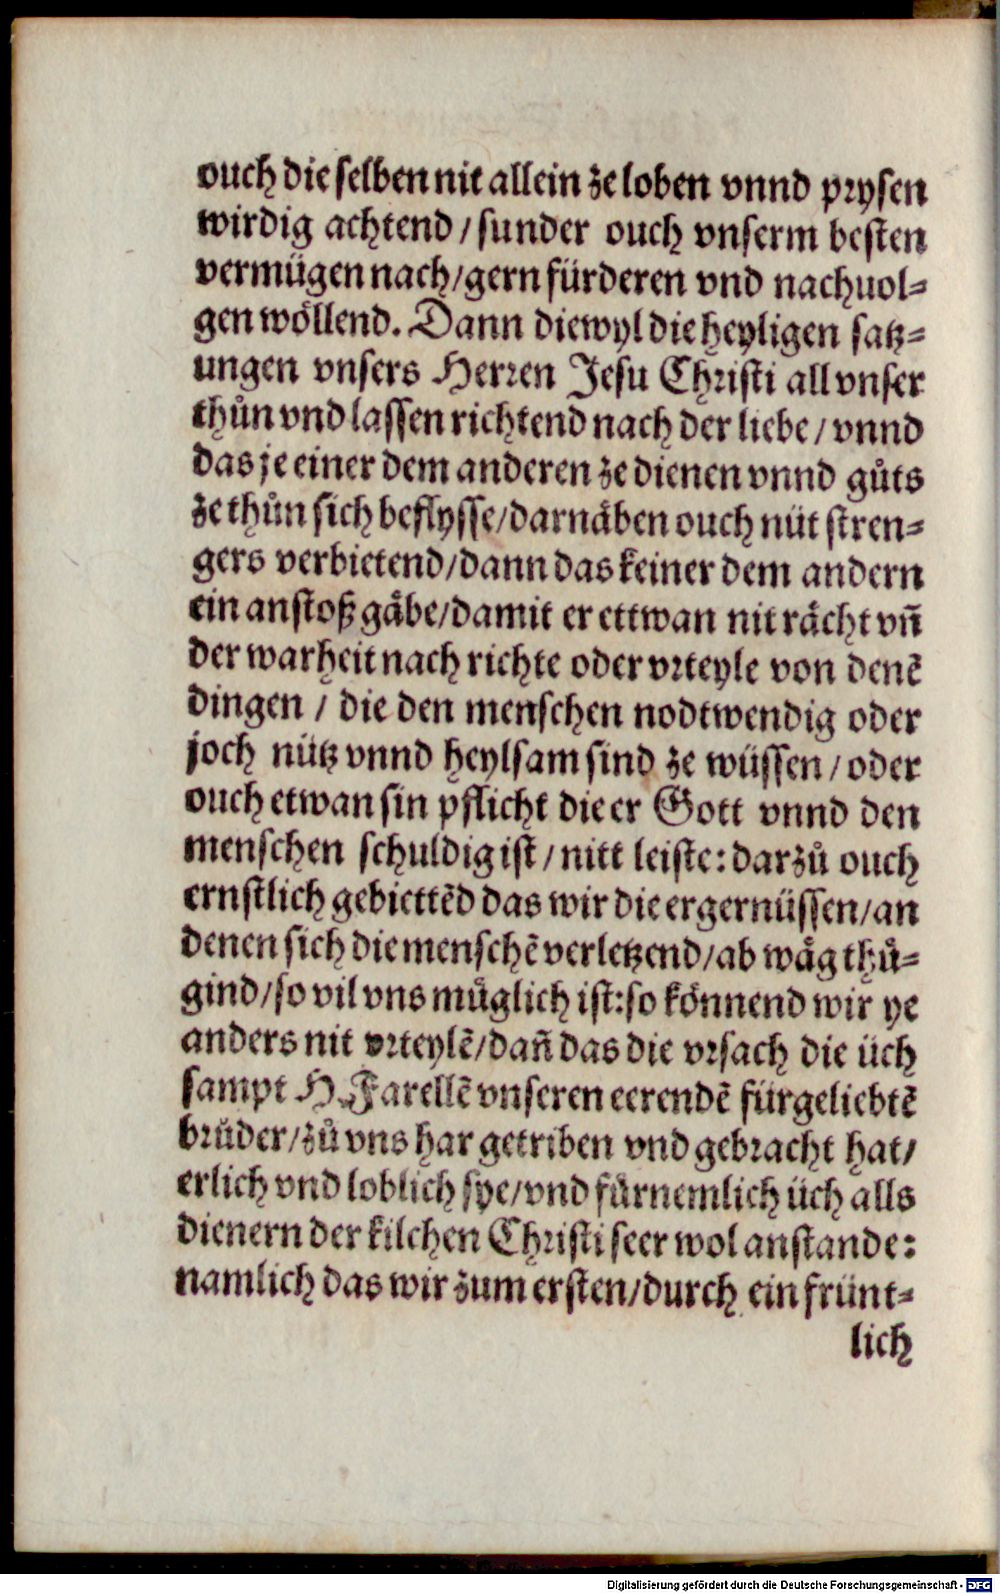 ouch die selben nit allein ze loben vnnd prysen
wirdig achtend / sunder ouch vnserm besten
vermügen nach / gern fürderen vnd nachuol⸗
gen wöllend. Dann diewyl die heyligen satz⸗
ungen vnsers Herren Jesu Christi all vnser
thůn vnd lassen richtend nach der liebe / vnnd
das je einer dem anderen ze dienen vnnd gůts
ze thůn sich beflysse / darnäben ouch nüt stren⸗
gers verbietend / dann das keiner dem andern
ein anstoß gäbe / damit er ettwan nit rächt vñ
der warheit nach richte oder vrteyle von denē
dingen / die den menschen nodtwendig oder
joch nütz vnnd heylsam sind ze wüssen / oder
ouch etwan sin pflicht die er Gott vnnd den
menschen schuldig ist / nitt leiste: darzů ouch
ernstlich gebiettēd das wir die ergernüssen / an
denen sich die menschē verletzend / ab wäg thů⸗
gind / so vil vns müglich ist: so könnend wir ye
anders nit vrteylē / dañ das die vrsach die üch
sampt H. Farellē vnseren eerendē fürgeliebtē
brüder / zů vns har getriben vnd gebracht hat /
erlich vnd loblich sye / vnd fürnemlich üch alls
dienern der kilchen Christi seer wol anstande:
namlich das wir zum ersten / durch ein frünt⸗
lich
Digitalisierung gefördert durch die Deutsche Forschungsgemeinschaft - DFG